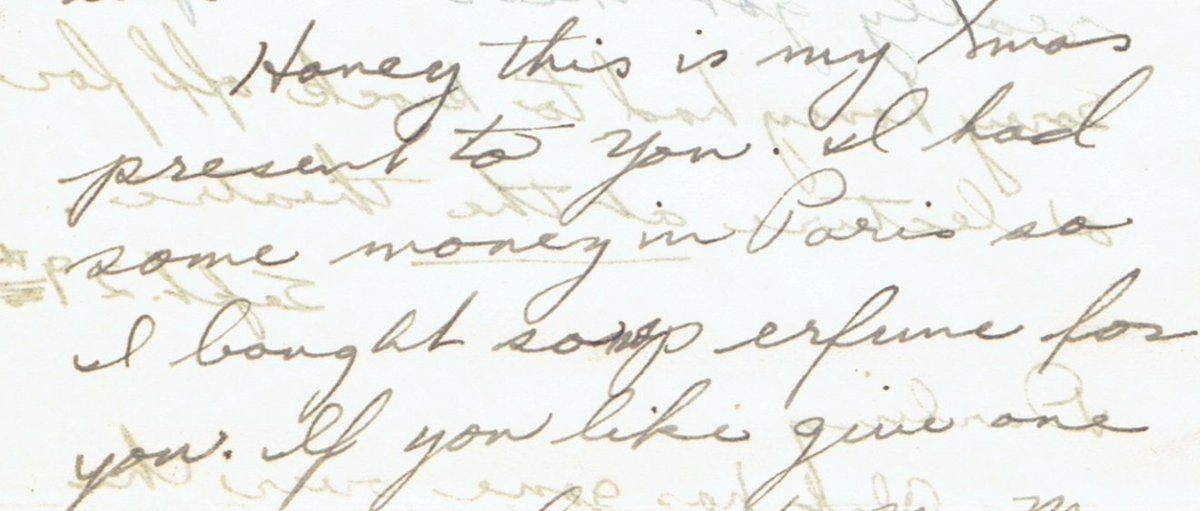 Honey this is my Xmas
present to you. I had
some money in Paris so
I bought some perfume for
you. If you like give one